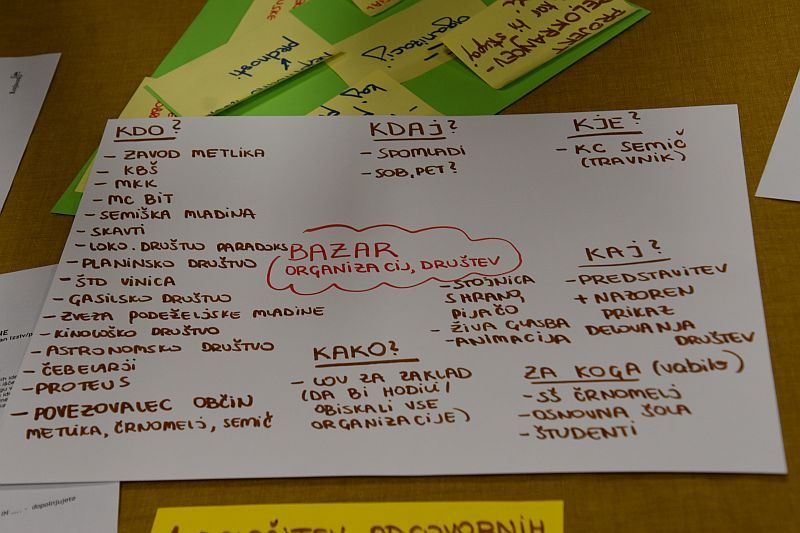 PROJEKT
BELOKRANCEV-
kar jih
stopaj
organizacij
prednosti
KDO?
- ZAVOD METLIKA
- KBŠ
- MKK
- MC BIT
- SEMIŠKA MLADINA
- SKAVTI
- LOKO. DRUŠTVO PARADOKS
- PLANINSKO DRUŠTVO
- ŠTD VINICA
- GASILSKO DRUŠTVO
- ZVEZA PODEŽELJSKE MLADINE
- KINOLOŠKO DRUŠTVO
- ASTRONOMSKO DRUŠTVO
- ČEBELARJI
- PROTEUS
- POVEZOVALEC OBČIN
METLIKA, ČRNOMELJ, SEMIČ
KDAJ?
- SPOMLADI
- SOB, PET?
KJE?
- KC SEMIČ
(TRAVNIK)
BAZAR
ORGANIZACIJ, DRUŠTEV
- STOJNICA
S HRANO,
PIJAČO
- ŽIVA GLASBA
- ANIMACIJA
KAJ?
- PREDSTAVITEV
+ NAZOREN
PRIKAZ
DELOVANJA
DRUŠTEV
KAKO?
- LOV ZA ZAKLAD
(DA BI HODILI/
OBISKALI VSE
ORGANIZACIJE)
ZA KOGA (vabilo)
- SŠ ČRNOMELJ
- OSNOVNA ŠOLA
- ŠTUDENTI
- dopolnjujete
ODGOVORNIH